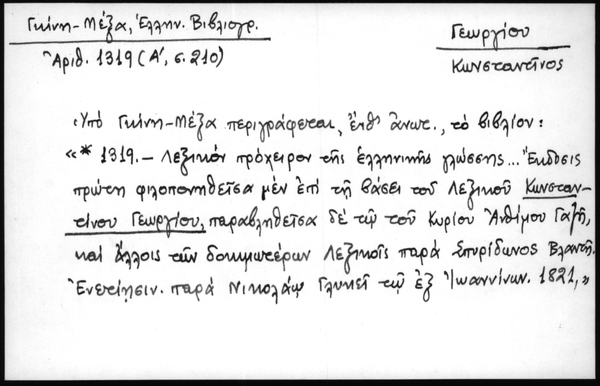 Γκίνη-Μέξα, Ἑλλην. Βιβλιογρ.
Ἀριθ. 1319 (Α', σ. 210)
Γεωργίου
Κωνσταντῖνος
Ὑπό Γκίνη-Μέξα περιγράφεται, ἔνθ' ἀνωτ., τό βιβλίον:
«* 1319.- Λεξικόν πρόχειρον τῆς ἑλληνικῆς γλώσσης... Ἔκδοσις
πρώτη φιλοπονηθεῖσα μέν ἐπί τῇ βάσει τοῦ Λεξικοῦ Κωνσταν-
τίνου Γεωργίου, παραβληθεῖσα δέ τῷ τοῦ Κυρίου Ἀνθίμου Γαζῆ,
καί ἄλλοις τῶν δοκιμωτέρων Λεξικοῖς παρά Σπυρίδωνος Βλαντῆ.
Ἐνετίῃσιν. παρά Νικολάῳ Γλυκεῖ τῷ ἐξ Ἰωαννίνων. 1821,»